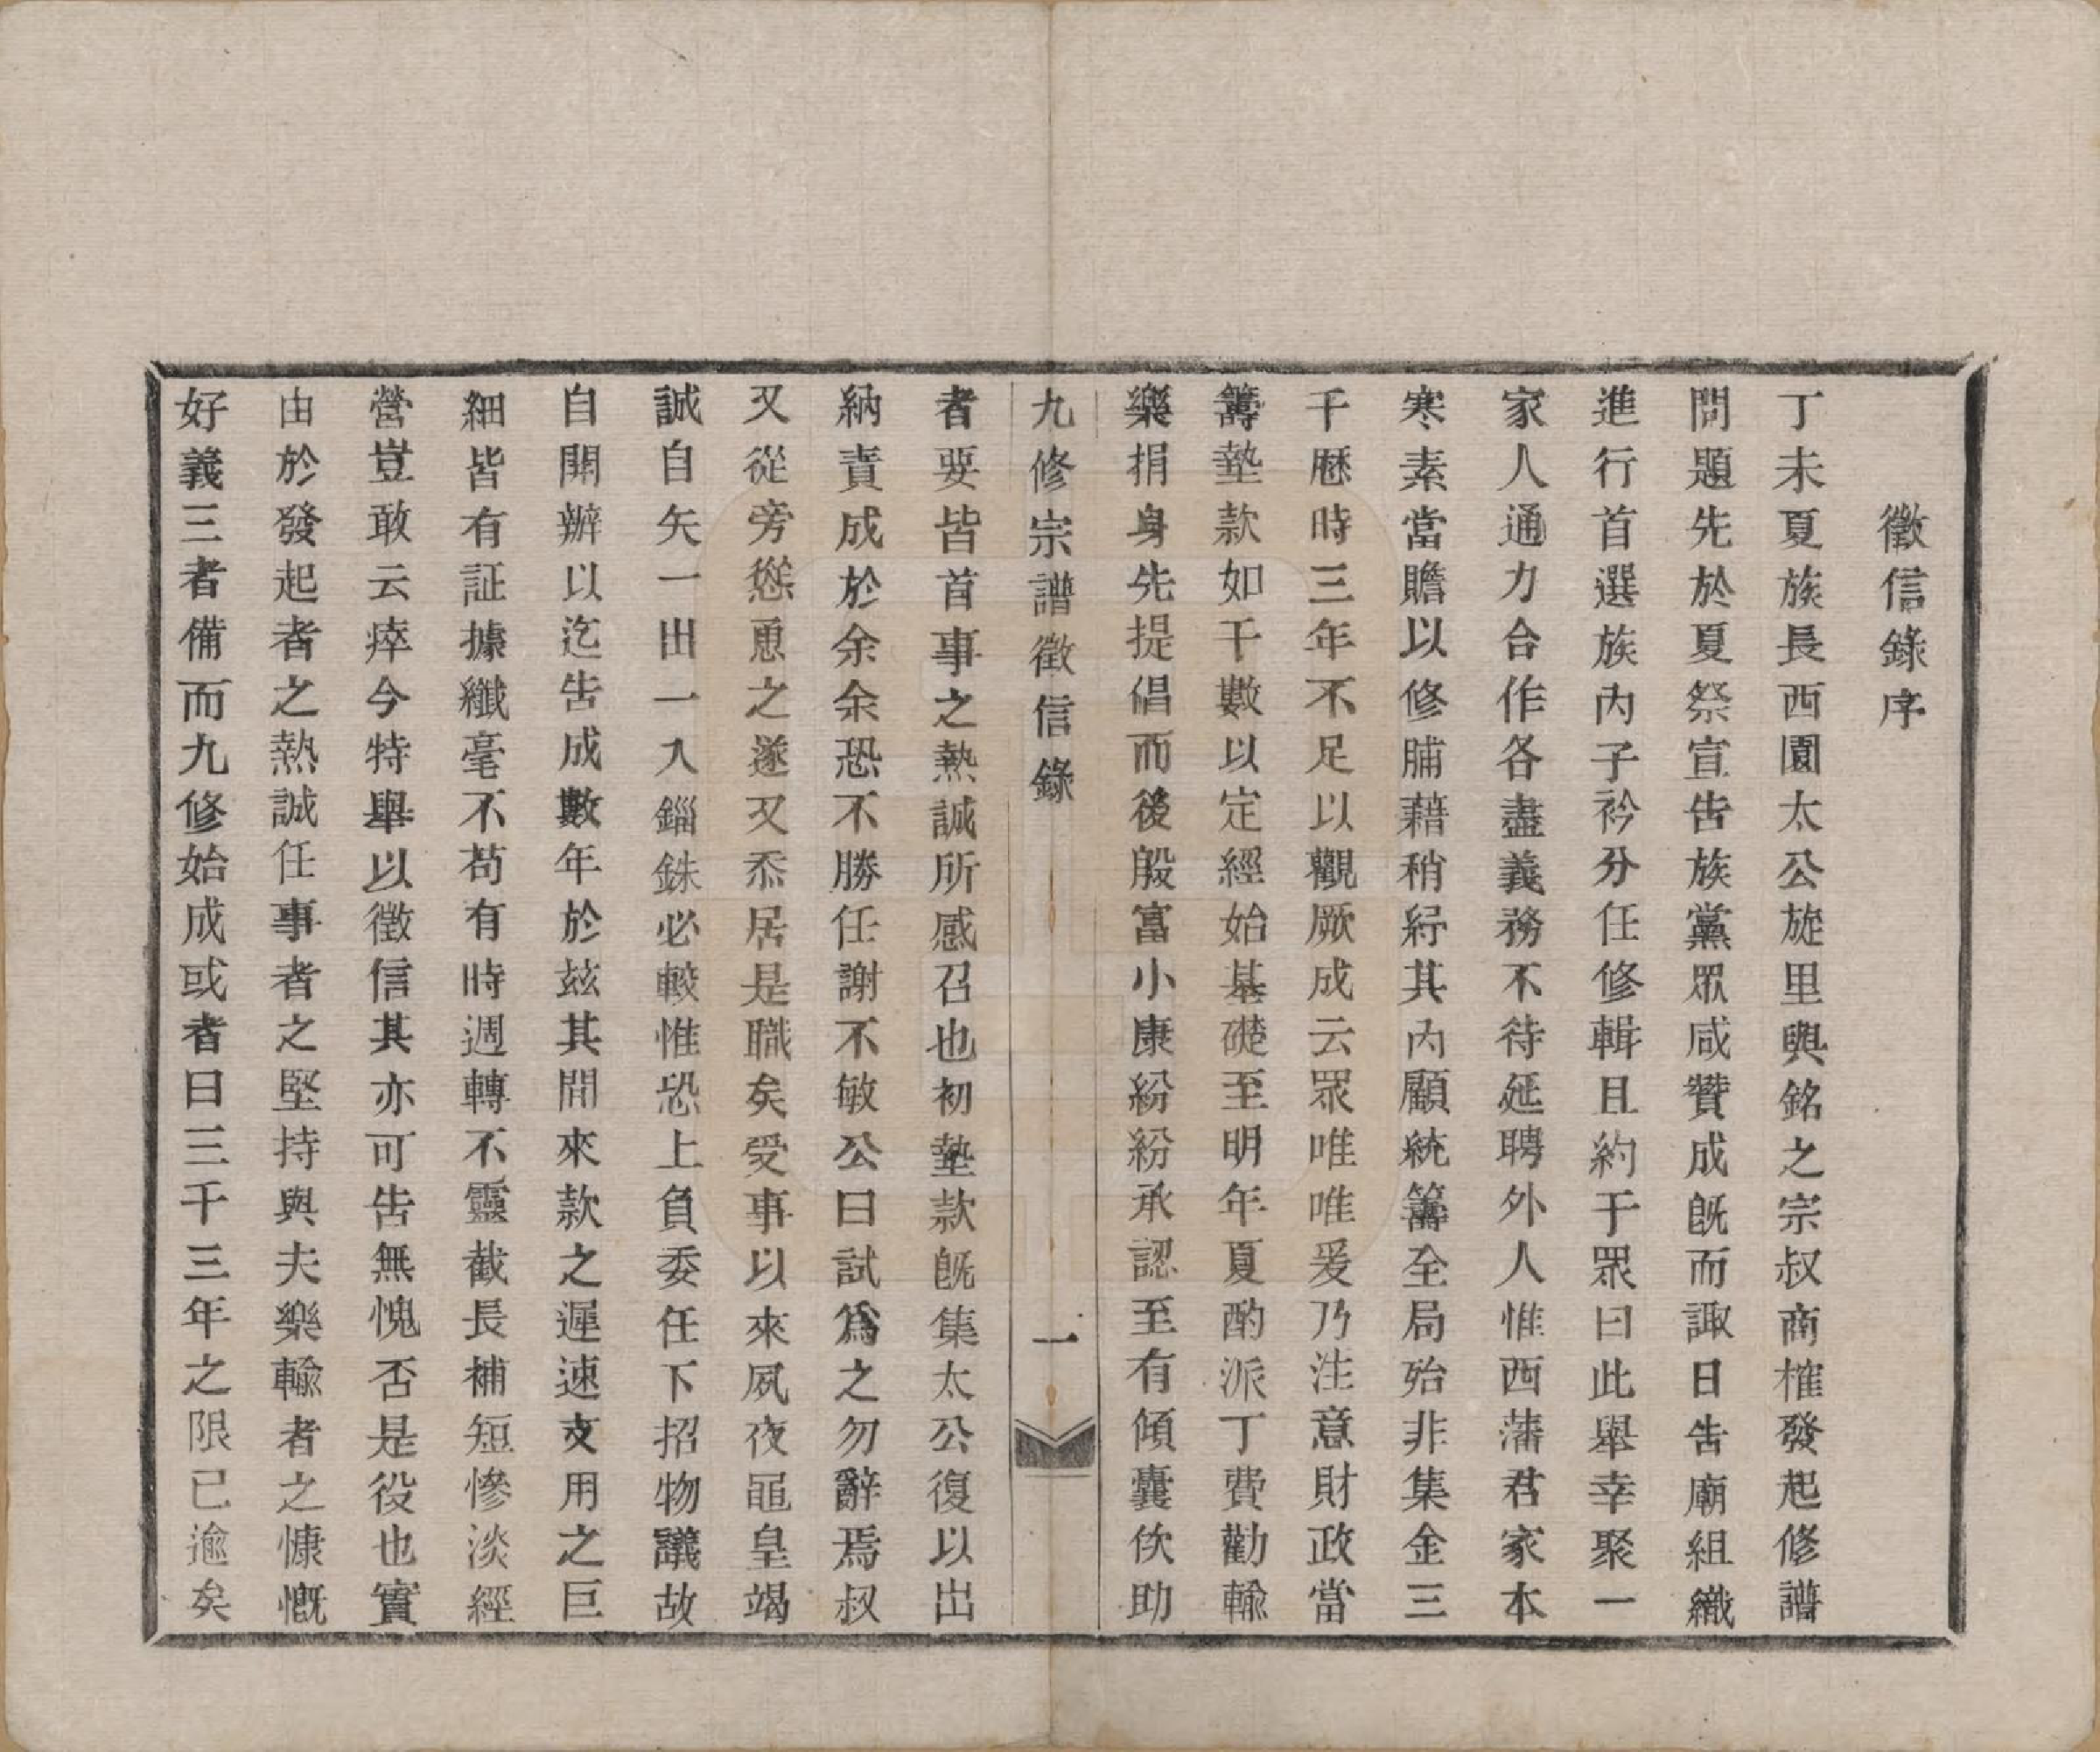 徵信錄序
丁未夏族長西園太公旋里與銘之宗叔商榷發起修譜
問題先於夏祭宣告族黨眾咸贊成旣而諏日告廟組織
進行首選族內子衿分任修輯且約于眾曰此舉幸聚一
家人通力合作各盡義務不待延聘外人惟西藩君家本
寒素當贍以修脯藉稍紓其內顧統籌全局殆非集金三
千歷時三年不足以觀厥成云眾唯唯爰乃注意財政當
籌墊款如干數以定經始基礎至明年夏酌派丁費勸輸
樂捐身先提倡而後殷富小康紛紛承認至有傾囊佽助
九修宗譜徵信錄
一
者要皆首事之熱誠所感召也初墊款旣集太公復以出
納責成於余余恐不勝任謝不敏公曰試爲之勿辭焉叔
又從旁慫恿之遂又忝居是職矣受事以來夙夜黽皇竭
誠自矢一出一入錙銖必較惟恐上負委任下招物議故
自開辦以迄告成數年於茲其間來款之遲速支用之巨
細皆有証據纖毫不苟有時週轉不靈截長補短慘淡經
營豈敢云瘁今特舉以徵信其亦可告無愧否是役也實
由於發起者之熱誠任事者之堅持與夫樂輸者之慷慨
好義三者備而九修始成或者曰三千三年之限已逾矣